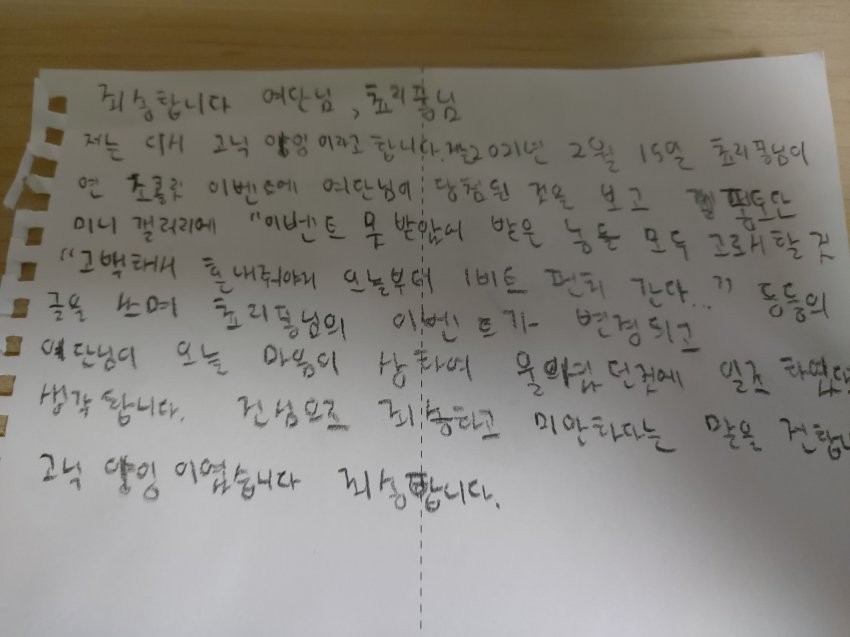 죄송합니다 여단님, 쵸리퐁님
저는 다시 고닉 양잉이라고 합니다. 저는 2021년 2월 15일 쵸리퐁님이
연 초콜릿 이벤트에 여단님이 당첨된 것을 보고
미니 갤러리에 "이벤트 못 받았어 받은 놈들 모두 고로시할 것
"고백해서 혼내줘야지 오늘부터 1비트 펀치 간다..." 등등의
글을 쓰며 쵸리퐁님의 이벤트가 변경되고
여단님이 오늘 마음이 상하여 일조 하였다
생각합니다. 진심으로 죄송하고 미안하다는 말을 전합니
고닉 양잉 이였습니다 죄송합니다.